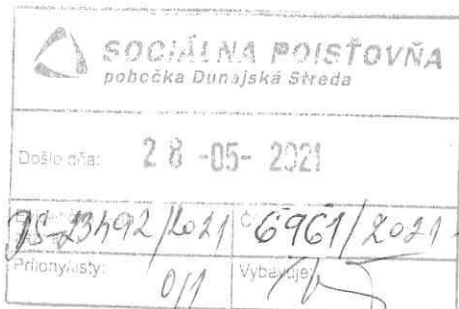 SOCIÁLNA POISŤOVŇA
pobočka Dunajská Streda
Došlo dňa: 28 -05- 2021
6961/2021
Prílohy/listy: 0/1
Vybavuje: